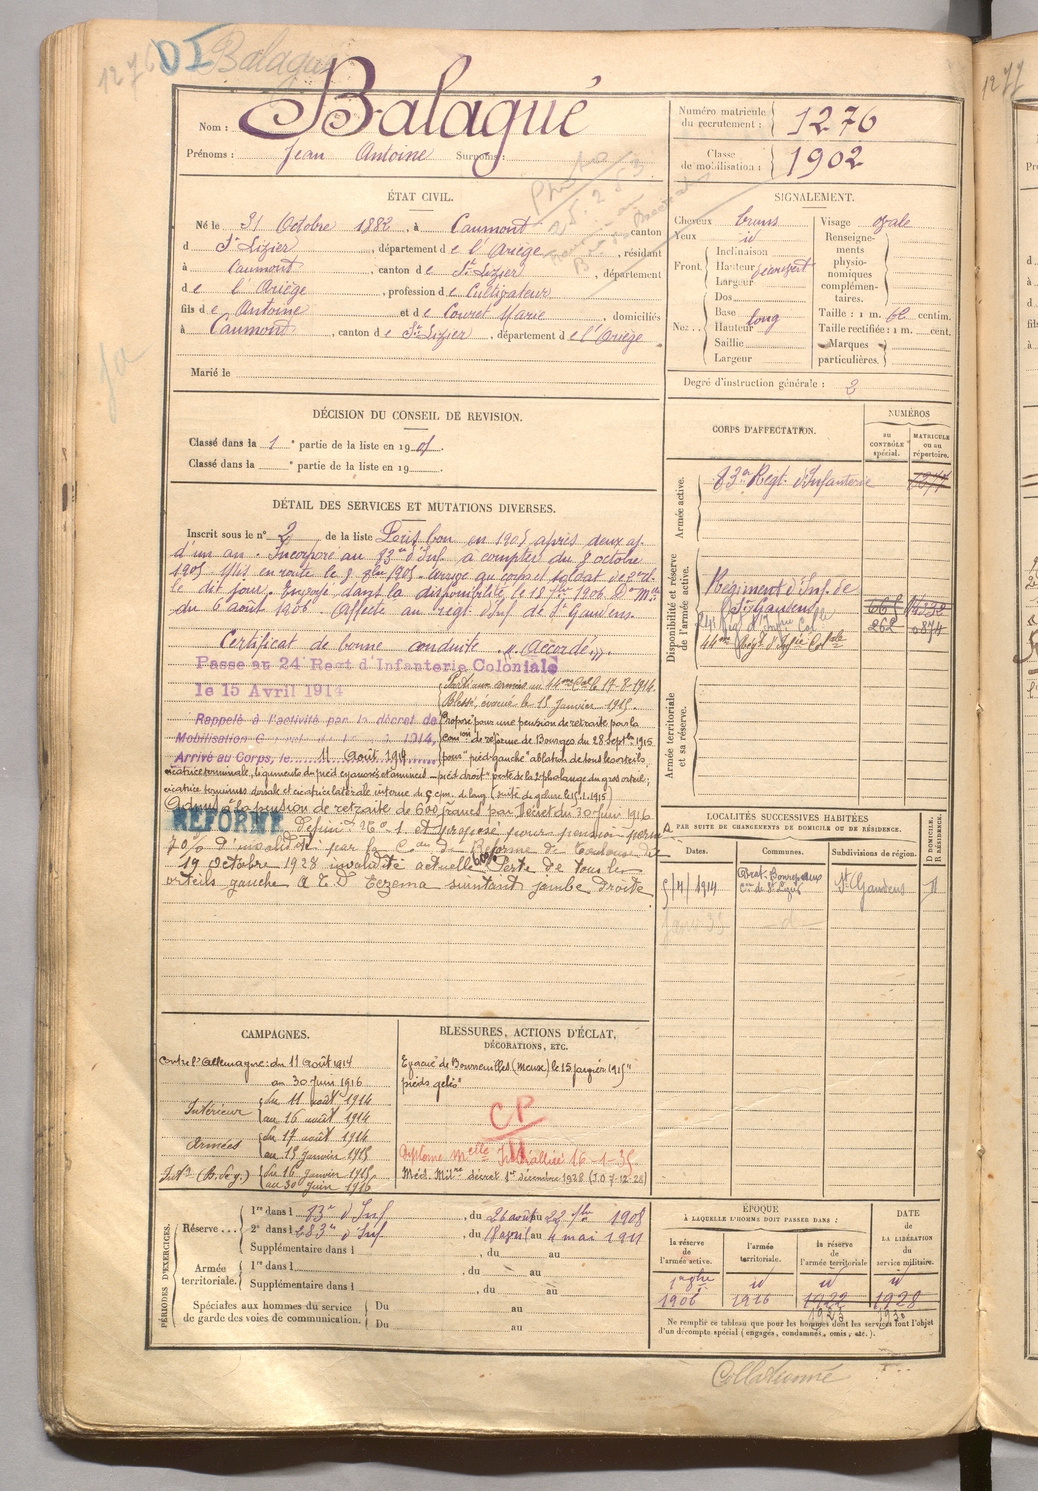 1276
DI
Balagué
1277
Nom : Balagué
Prénoms : Jean Antoine Surnoms :
Numéro matricule du recrutement : 1276
Classe de mobilisation : 1902
ÉTAT CIVIL.
Né le 31 Octobre 1882, à Caumont, canton
d St Lizier, département de l'Ariège, résidant
à Caumont, canton de St Lizier, département
de l'Ariège, profession de Cultivateur
fils de Antoine et de Couret Marie, domiciliés
à Caumont, canton de St Lizier, département de l'Ariège
Marié le
SIGNALEMENT.
Cheveux bruns
Yeux id
Front. Inclinaison
Hauteur découvert
Largeur
Nez. Dos
Base
Hauteur long
Saillie
Largeur
Visage ovale
Renseignements physionomiques complémentaires.
Taille : 1 m. 62 centim.
Taille rectifiée : 1 m. cent.
Marques particulières.
Degré d'instruction générale : 2
DÉCISION DU CONSEIL DE REVISION.
Classé dans la 1e partie de la liste en 1905.
Classé dans la e partie de la liste en 19
CORPS D'AFFECTATION.
NUMÉROS
au CONTRÔLE spécial.
MATRICULE ou au répertoire.
Armée active.
83e Régt. d'Infanterie
Disponibilité et réserve de l'armée active.
Régiment d'Inf. de
St Gaudens
24e Rég d'Infrie Colle
262
0874
44me Régt d'Infie Colale
Armée territoriale et sa réserve.
DÉTAIL DES SERVICES ET MUTATIONS DIVERSES.
Inscrit sous le n° 2 de la liste Pris bon en 1905 après deux aj.
d'un an. Incorporé au 83e d'Inf. à compter du 8 octobre
1905 Mis en route le 8 8bre 1905. arrivé au corps et soldat de 2e cl.
le dit jour. Envoyé dans la disponibilité le 18 7bre 1906. Don Mle
du 6 août 1906. Affecté au régt d'Inf de St Gaudens.
Certificat de bonne conduite "Accordé".
Passe au 24 Regt d'Infanterie Coloniale
le 15 Avril 1914
Rappelé à l'activité par le décret de
Mobilisation Générale du 1914,
Arrivé au Corps, le 11 Août 1914
Parti aux armées au 44me Col le 17-8-1914.
Blessé, évacué le 15 Janvier 1915.
Proposé pour une pension de retraite par la
Comon de réforme de Bourges du 28 Septbre 1915
pour "pied gauche" ablation de tous les orteils,
cicatrice terminale, téguments du pied cyanosés et amincis - pied droit perte de la 2e phalange du gros orteil;
cicatrice terminus dorsale et cicatrice latérale interne de 5 c/m. de long (suite de gelure le 15.1.1915)
Admis à la pension de retraite de 600 francs par Décret du 30 Juin 1916
RÉFORMÉ Définitif No 1 et proposé pour pension perm
70% d'invalidité par la Con de Réforme de Toulouse du
19 Octobre 1928 invalidité actuelle 60% Perte de tous les
orteils gauche A.T.D Eczema suintant jambe droite
LOCALITÉS SUCCESSIVES HABITÉES
PAR SUITE DE CHANGEMENTS DE DOMICILE OU DE RÉSIDENCE.
Dates.
Communes.
Subdivisions de région.
D DOMICILE, R RÉSIDENCE.
1914
St Gaudens
janv 35
d
CAMPAGNES.
Contre l'Allemagne : du 11 août 1914
au 30 Juin 1916
Intérieur du 11 août 1914
au 16 août 1914
Armées du 17 août 1914
au 15 janvier 1915
Intr (B. de g.) du 16 janvier 1915
au 30 juin 1916
BLESSURES, ACTIONS D'ÉCLAT,
DÉCORATIONS, ETC.
Evacué de Boureuilles (Meuse) le 15 janvier 1915"
pieds gelés"
CP
diplôme melle 16-1-35
Méd. Milre décret 1er décembre 1928 (J.O 7-12-28)
PÉRIODES D'EXERCICES.
Réserve... 1re dans l 83e d'Inf, du 26 août au 22 7bre 1908
2e dans l 283e d'Inf, du 18 avril au 4 mai 1911
Supplémentaire dans l, du au
Armée territoriale. 1re dans l, du au
Supplémentaire dans l, du au
Spéciales aux hommes du service de garde des voies de communication. Du au
Du au
ÉPOQUE
À LAQUELLE L'HOMME DOIT PASSER DANS :
la réserve de l'armée active.
l'armée territoriale.
la réserve de l'armée territoriale
DATE de LA LIBÉRATION du service militaire.
1er 8bre id id id
1906 1916 1922 1928
1923
Ne remplir ce tableau que pour les hommes dont les services font l'objet
d'un décompte spécial (engagés, condamnés, omis, etc.).
Collationné